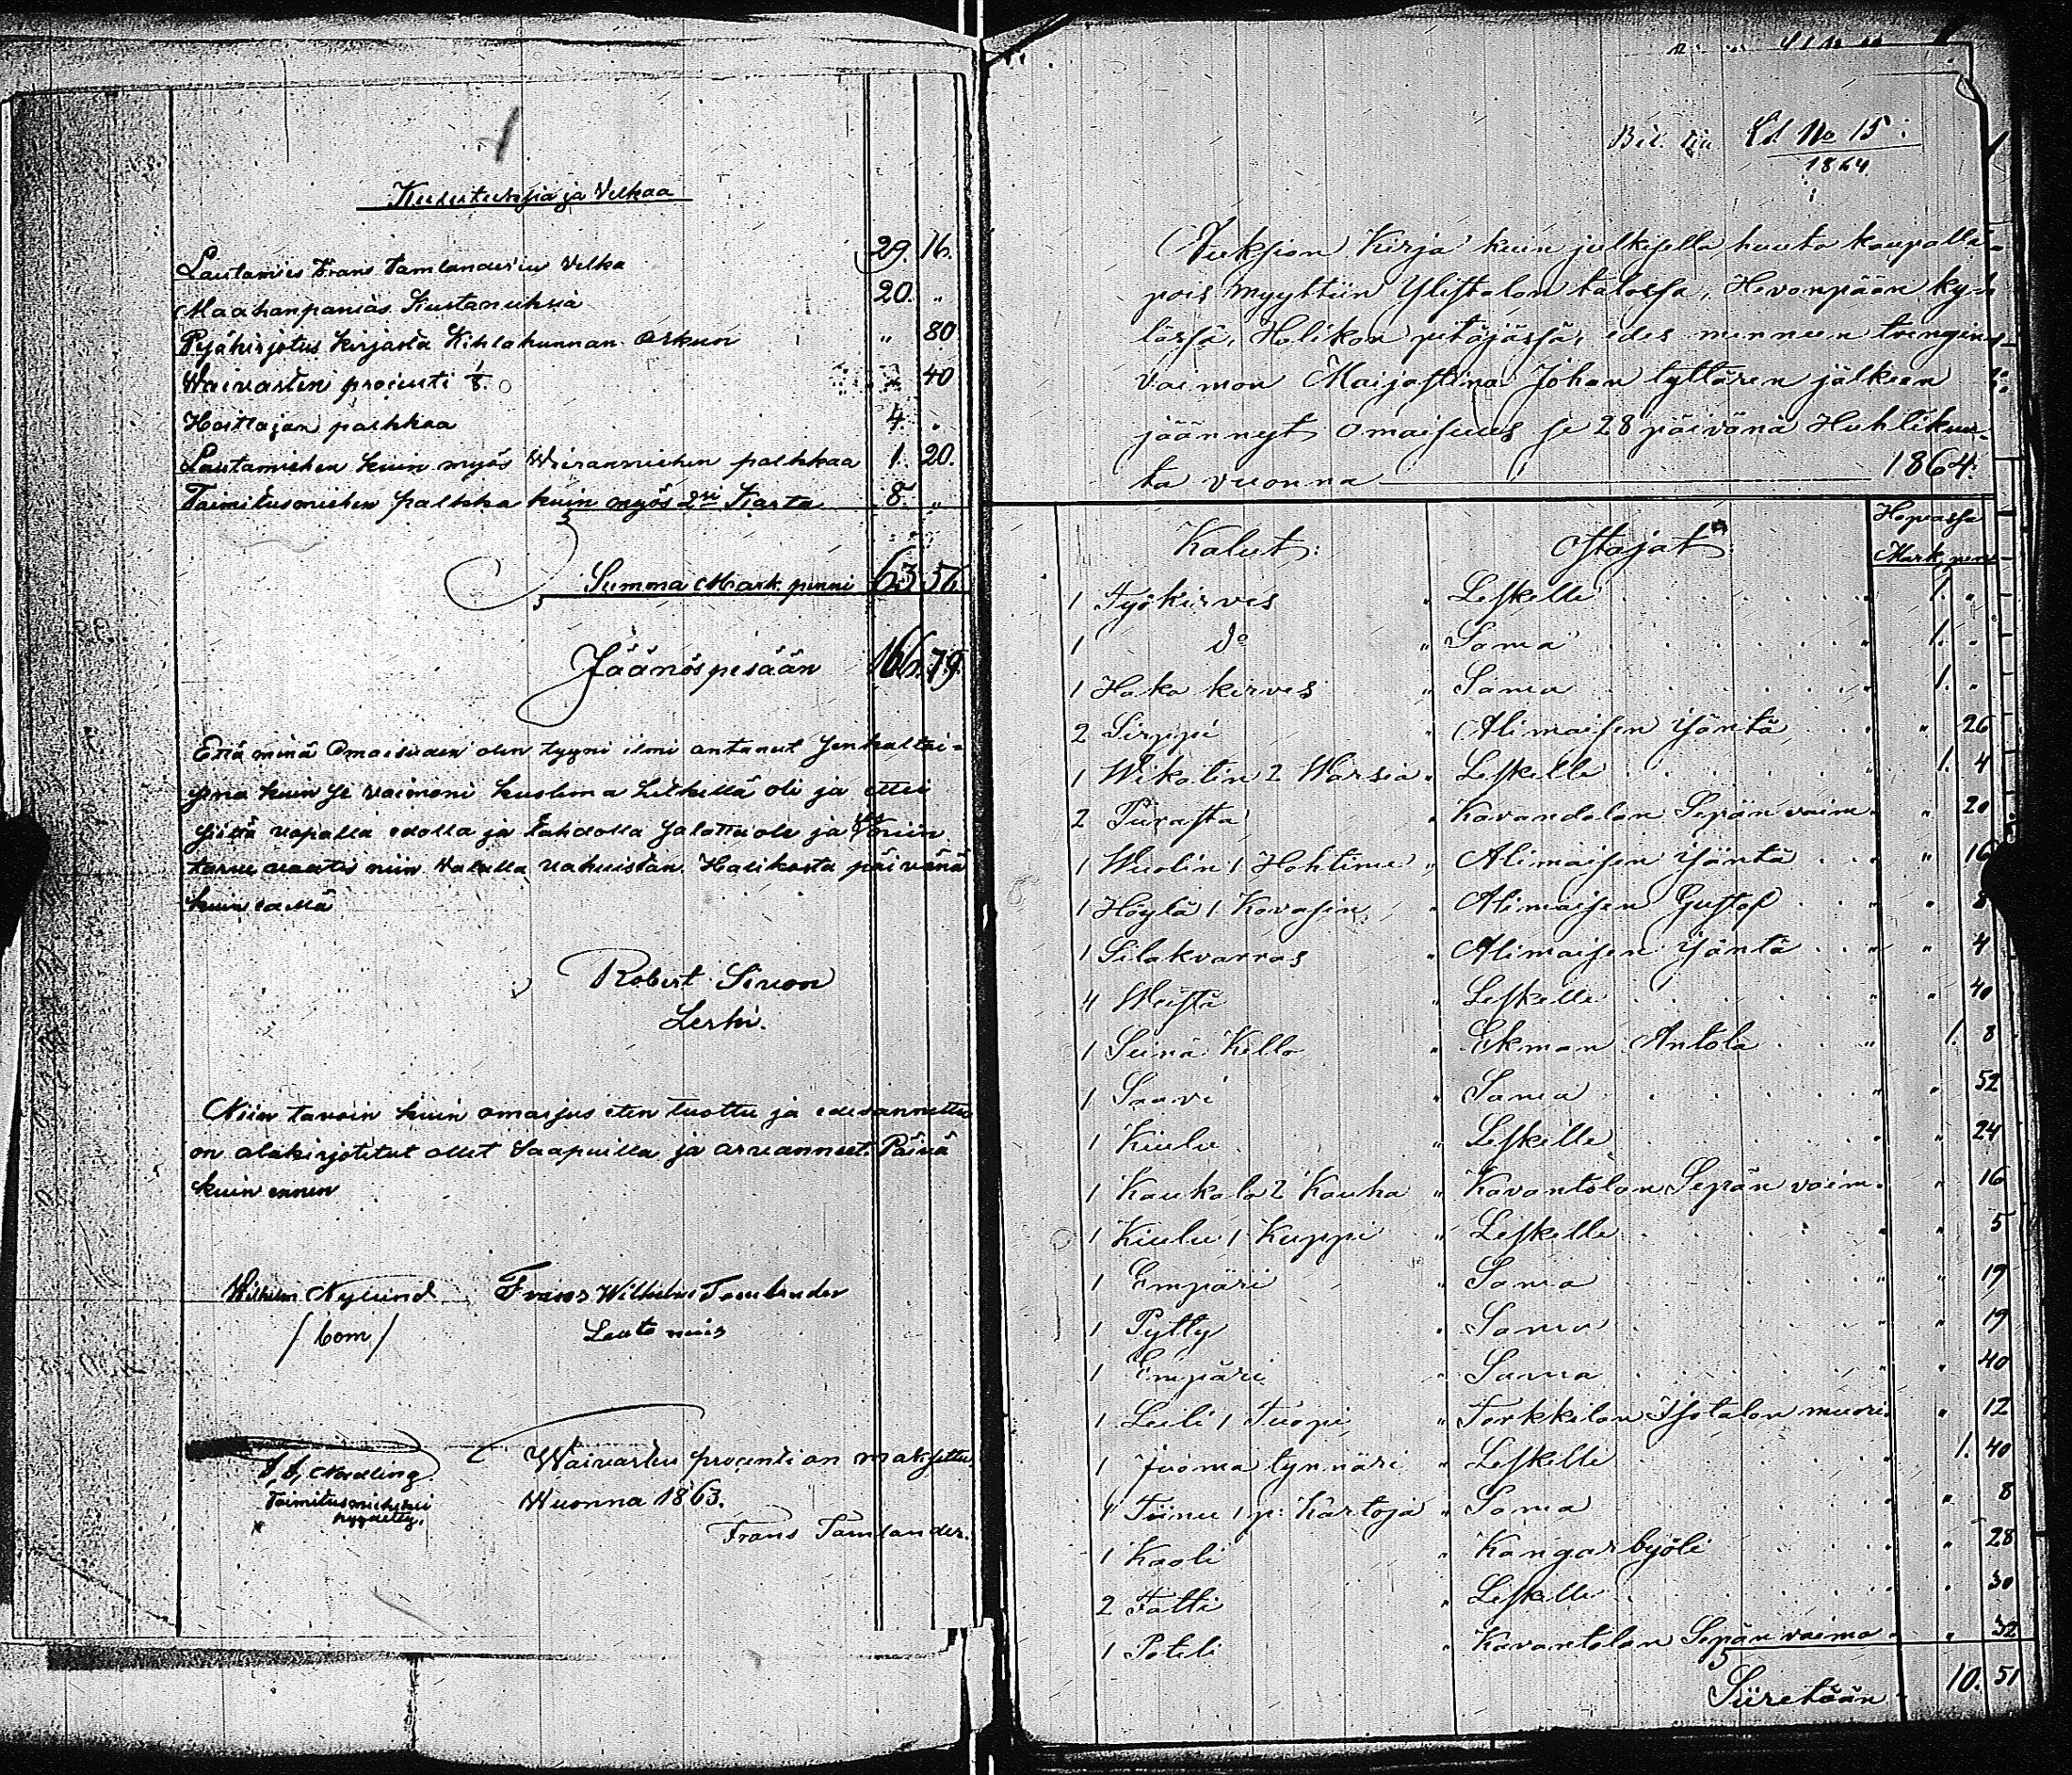 Kulutuksia ja Velkaa
Lautamies Frans Tamlanderin Velka 29. 16.
Maahanpanias Kustanuksia 20. "
Pesäkirjotus kirjasta Kihlakunnan Oikeus " 80
Waivasten prosenti 1/8. " 40
Hoittajan palkkaa 4. "
Lautamiehen kuin myös Wieraanmiehen palkkaa 1. 20.
Toimitusmiehen palkka kuin myös 2en Karta 8. "
Summa Mark. penni 63 56
Jäänös pesään 166. 79.
Että minä Omaisuden olen tyyni ilmi antanut senkaltai=
sena kuin se vaimoni kuolema hetkellä oli ja ettei
siittä vapalla edolla ja tahdolla salattu ole ja jos niin
tarve vaatis niin valalla vahvistan. Halikosta päivänä
kuin edellä
Robert Simon
Leski.
Niin tavoin kuin omaisus eten tuottu ja edesannettu
on alakirjotetut ollet saapuilla ja arvanneet. Päivä
kuin ennen
Wilhelm Nylund Frans Wilhelm Tamlander
/bom/ Lauta mies
Nordling Waivasten prosenti on maksettu
Toimitusmieheksi Wuonna 1863.
pyydetty. Frans Tamlander.
Bil. till Ld No 15:
1864
Auksion Kirja kuin julkisella huuto kaupalla
pois myyttiin Ylistalon talossa, Hevonpään ky=
lässä, Halikon pitäjässä, edes mennen trengin
vaimon Maijastina Johan tyttären jälkeen
jäännyt Omaisuus se 28 päivänä Huhtikuu=
ta vuonna 1864.
Kalut: Ostajat: Hopeassa
Mark. pen
1 Työkirves " Leskelle 1. "
1 do " Sama 1. "
1 Haka kirves " Sama 1. "
2 Sirppi " Alimaisen isäntä " 26
1 Wikatin 2 Warsia " Leskelle 1. 4
2 Purasta " Kavandolan Sepän vaim. " 20
1 Wuolin 1 Hohtime " Alimaisen isäntä " 16
1 Höylä 1 Kovasin " Alimaisen Gustaf " 8
1 Silakvarras " Alimaisen isäntä " 4
4 Weistä " Leskelle " 40
1 Seinä Kello " Ekman Antola 1. 8
1 Saavi " Sama " 52
1 Kiulu " Leskelle " 24
1 Kaukalo 2 Kauha " Kavantolan Sepän vaim. " 16
1 Kiulu 1 Kuppi " Leskelle " 5
1 Empäri " Sama " 19
1 Pytty " Sama " 19
1 Empäri " Sama " 40
1 Leili 1 Tuopi " Torkkilan Isotalon muori " 12
1 Juoma tynnäri " Leskelle 1. 40
1 Tiinu 1 p: Kartoja " Sama " 8
1 Kaoli " Kangarbyöli " 28
2 Fatti " Leskelle " 30
1 Poteli " Kavantolan Sepän vaimo " 32
Siiretään 10. 51